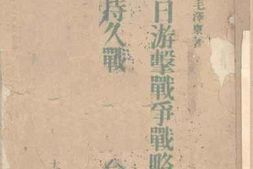 毛澤東著
日游擊戰爭戰略
持久戰